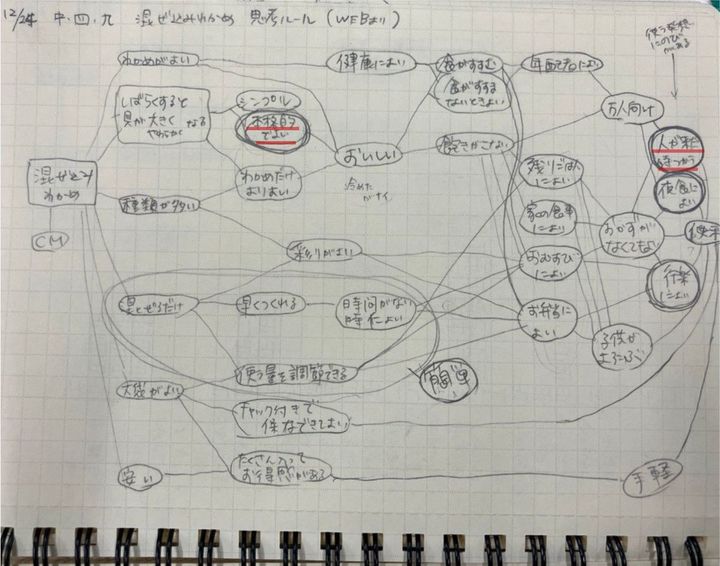 12/24 中・四・九 混ぜ込みわかめ 思考ルール (WEBより)
使う発想
にのび
がある
わかめがよい
健康によい
食がすすむ
食がすすま
ないときよい
年配でもによい
しばらくすると
具が大きく なる
やわらかく
シンプル
本格的
でよい
万人向け
飽きがこない
人が来た
時つかう
おいしい
冷めた
がナイ
残りごはん
によい
混ぜ込み
わかめ
わかめだけ
よりよい
夜食に
よい
種類が多い
家の食事
によい
おかずが
なくてもよい
便利
CM
彩りがよい
おむすび
によい
行楽
によい
混ぜるだけ
早くつくれる
時間がない
時によい
お弁当に
よい
子供が
よろこぶ
使う量を調節できる
簡単
大袋がよい
チャック付きで
保存できてよい
安い
たくさん入って
お得感がある
手軽